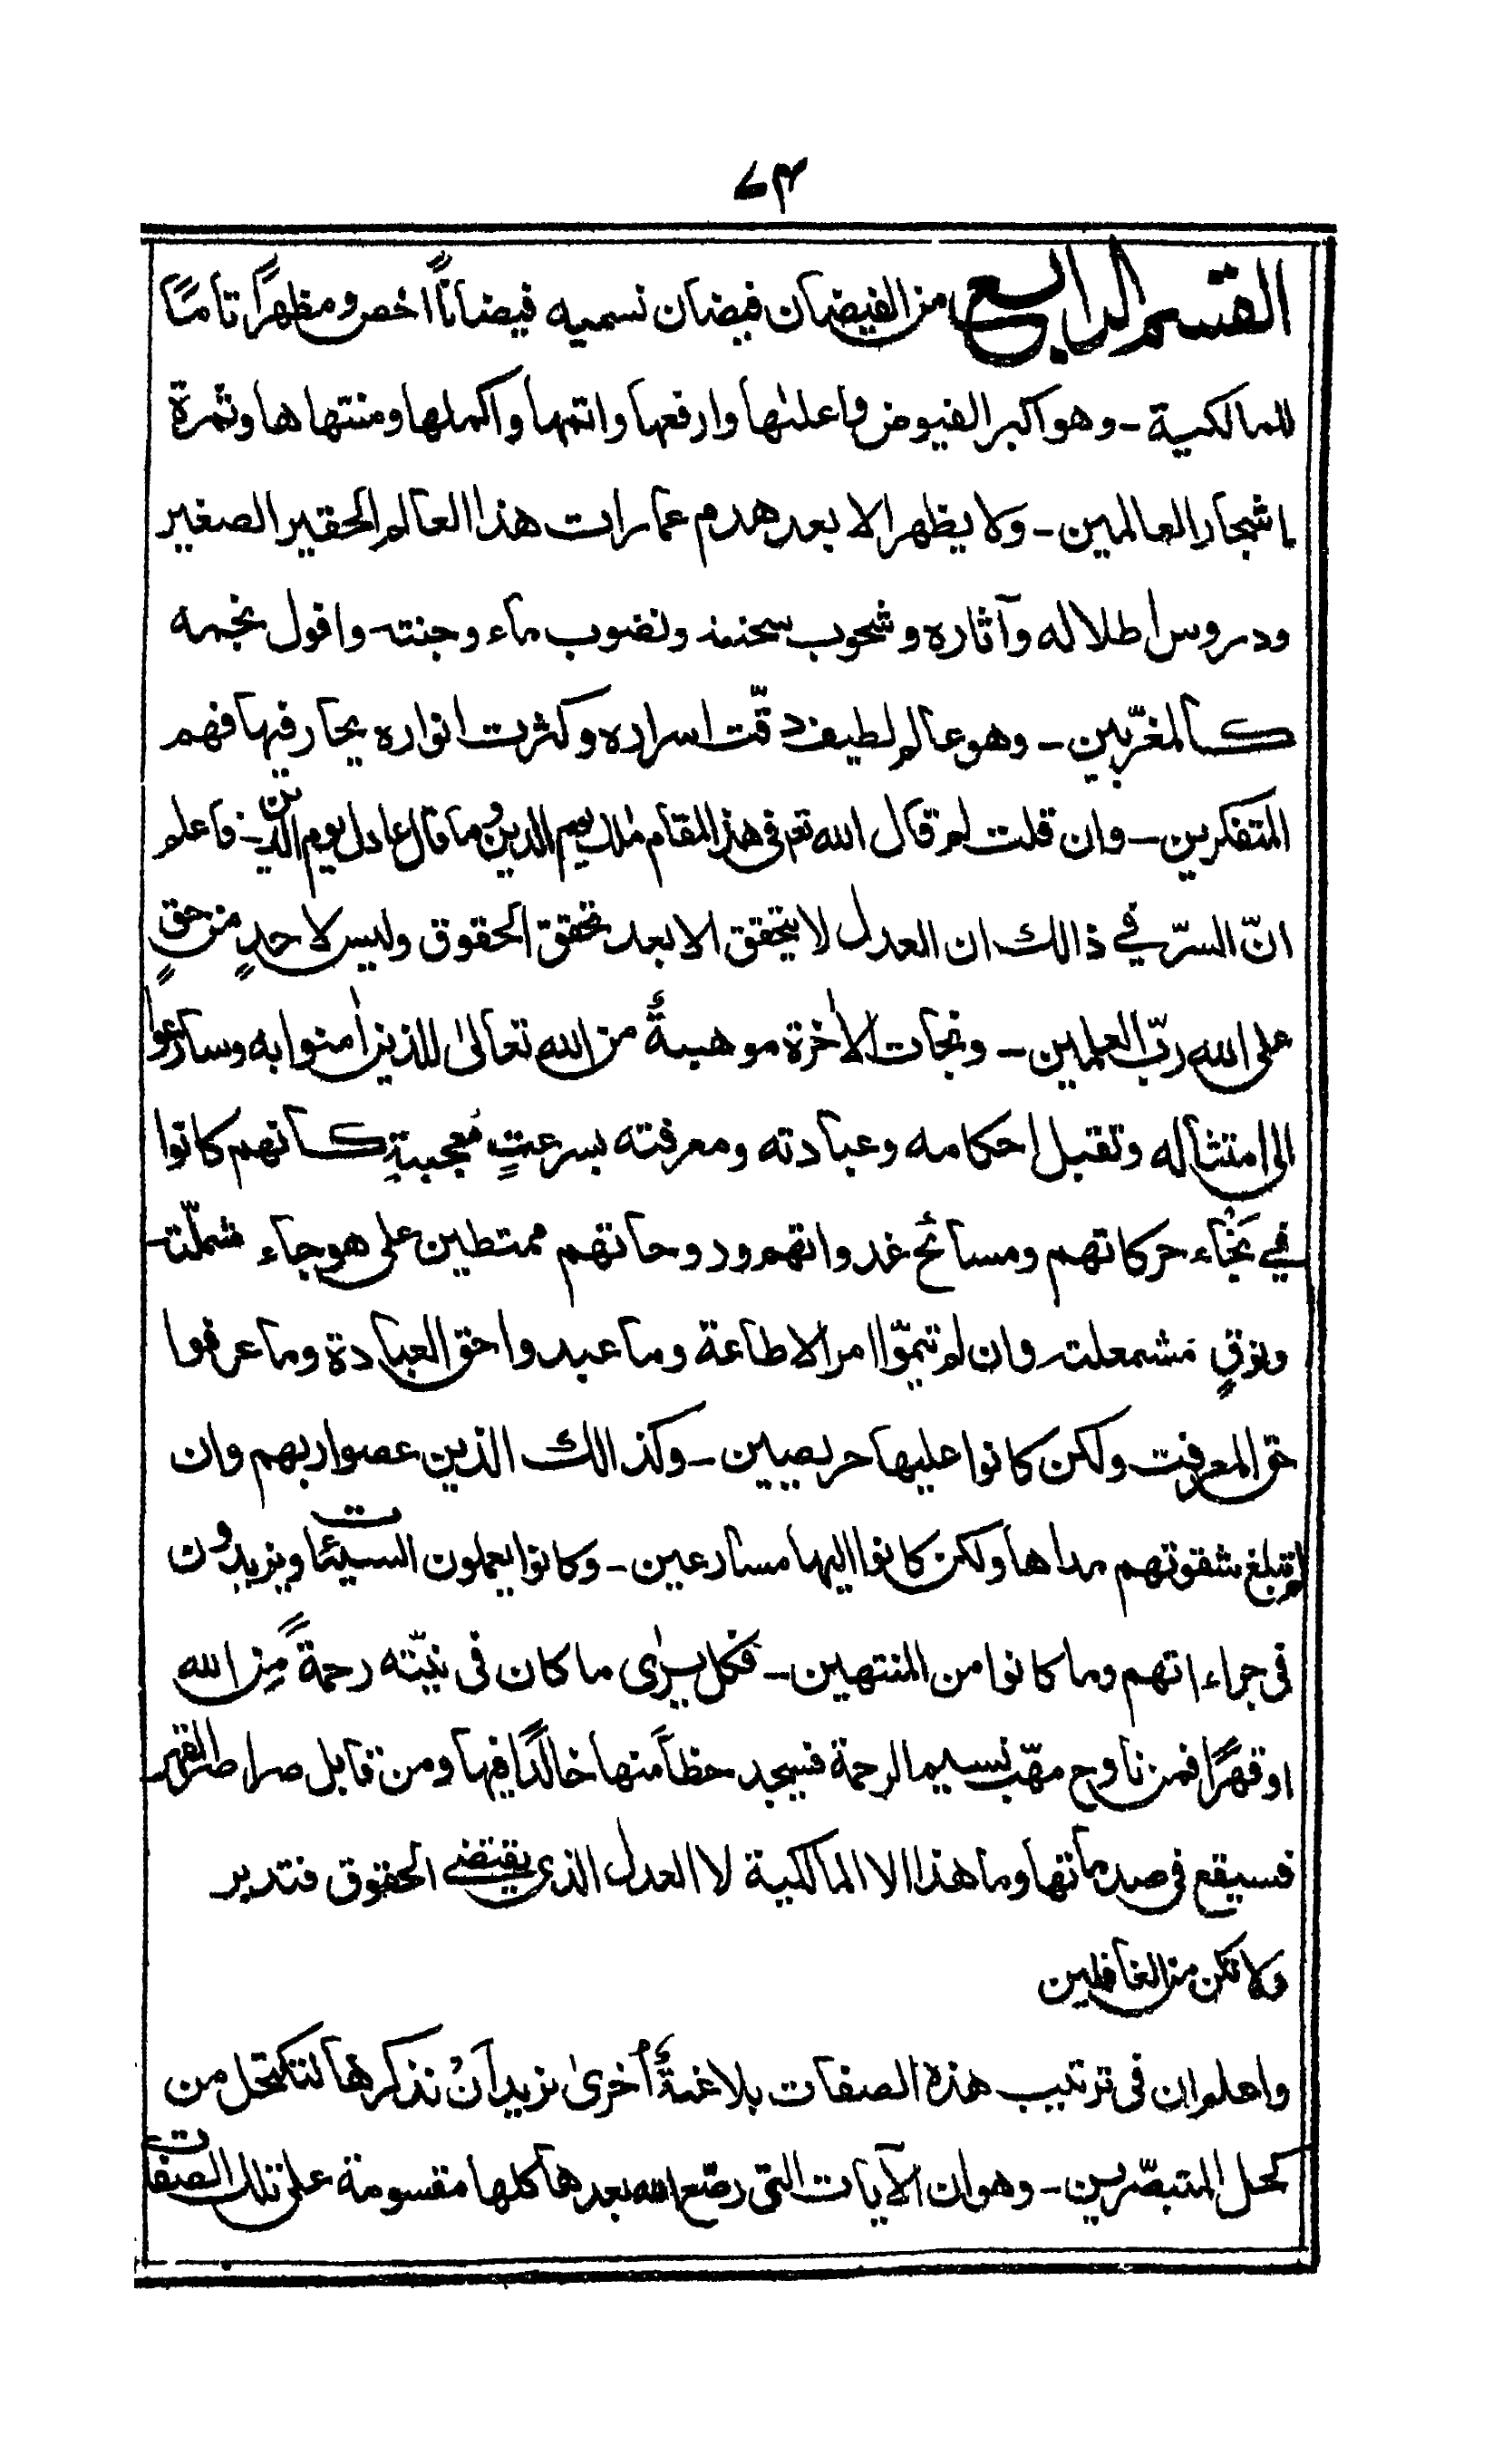 ۷۴
القسم الرابع من الفیضان فیضان نسمیه فیضاناً اخص ومظهراً تاماً
للمالکیة ۔ وهو اکبر الفیوض واعلٰها وارفعها واتمها واکملها ومنتهاها وثمرة
اشجار العالمین ۔ ولا یظهر الا بعد هدم عمارات هذا العالم الحقیر الصغیر
ودروس اطلاله وآثاره وشحوب سحنته ونضوب ماء وجنته وافول نجمه
کالمغرّبین ۔ وهو عالم لطیف دقّت اسراره وکثرت انواره یحار فیها فهم
المتفکرین ۔ وان قلت لم قال الله تعٰ فی هذا المقام مٰلك یوم الدین وما قال عادل یوم الدین ۔ فاعلم
انّ السرّ فی ذالك ان العدل لا یتحقق الا بعد تحقق الحقوق ولیس لاحدٍ من حقٍ
علی الله ربّ العلمین ۔ ونجات الاٰخرة موهبةٌ من الله تعالیٰ للذین اٰمنوا به وسارعوا
الی امتثاله وتقبل احکامه وعبادته ومعرفته بسرعتٍ مُعجبةٍ کانهم کانوا
فی نَجَاء حرکاتهم ومسائح غدواتهم وروحاتهم ممتطین علی هوجاء شملّت
ونوقٍ مشمعلت وان لم یتمّوا امر الاطاعة وما عبدوا حق العبادة وما عرفوا
حق المعرفت ولکن کانوا علیها حریصین ۔ وکذالك الذین عصوا ربهم وان
لم تبلغ شقوتهم مداها ولکن کانوا الیها مسارعین ۔ وکانوا یعملون السیئات ویزیدون
فی جراءاتهم وما کانوا من المنتهین ۔ فکل یرٰی ما کان فی نیّته رحمةً مِن الله
او قهراً فمن ناوح مهّب نسیم الرحمة فسیجد حظاً منها خالداً فیها ومن قابل صراصر القهر
فسیقع فی صدماتها وما هذا الا المالکیة لا العدل الذی یقتضی الحقوق فتدبر
ولا تکن من الغافلین
واعلم ان فی ترتیب هذه الصفات بلاغةٌ اُخریٰ نرید اَنْ نذکرها لتکتحل من
کحل المتبصّرین ۔ وهو ان الآیات التی رصّع الله بعدها کلها مقسومة علی تلك الصفات